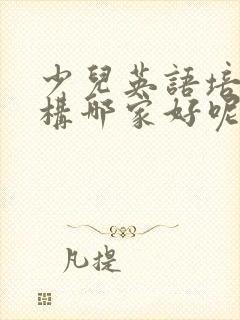 少兒英語培
構那家好呢
凡提